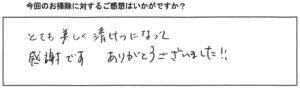 今回のお掃除に対するご感想はいかがですか？
とても美しく清けつになって
感謝です　ありがとうございました!!